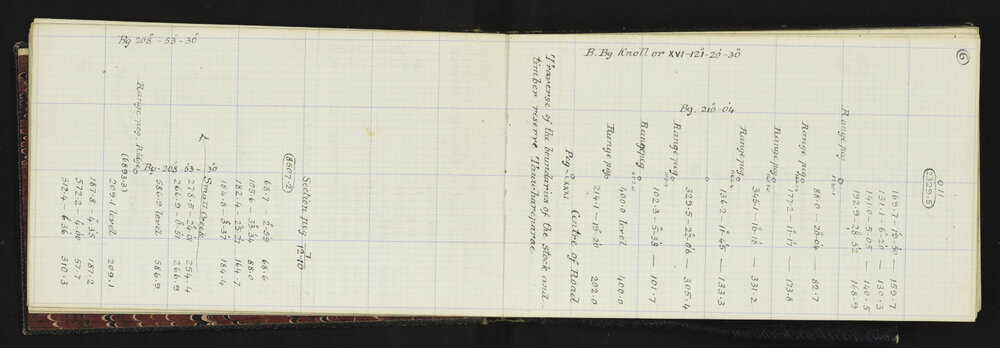 6
011
2329.5
169.7 – 19°–50' — 159.7
131.7 – 8–20 — 130.3
141.0 – 5–05 — 140.5
192.9 – 28–52 — 168.9
Range peg
88.0 – 20–04 — 82.7
Range peg
177.2 – 11–17 — 173.8
Range peg
345.1 – 16–18 — 331.2
Range peg
136.2 – 11–45 — 133.3
Range peg
329.5 – 22–06 — 305.4
Bg. 210°–04'
Range peg
102.3 – 5–38 — 101.7
Range peg
400.0 level 400.0
Range peg
214.1 – 19–20 202.0
Peg XXXI Centre of Road
B. By Knoll or XVI–121°–20'–30"
Traverse of the boundaries of the stock and
timber reserve Tauwharaparae
Section peg 7 12–10
(8507.2)
68.7 – 2–59 68.6
105.6 – 33–34 88.0
182.4 – 25–27 164.7
184.8 – 3–37 184.4
Small Creek
278.0 – 24–01 254.4
266.9 – 0–51 266.9
586.9 level 586.9
Bg–208°–53'–30"
Range peg. Ridge
(6893.3)
209.1 level 209.1
187.8 – 4.35 187.2
572.2 – 4–00 57.7
312.4 – 6–36 310.3
Bg 208°–53'–30"